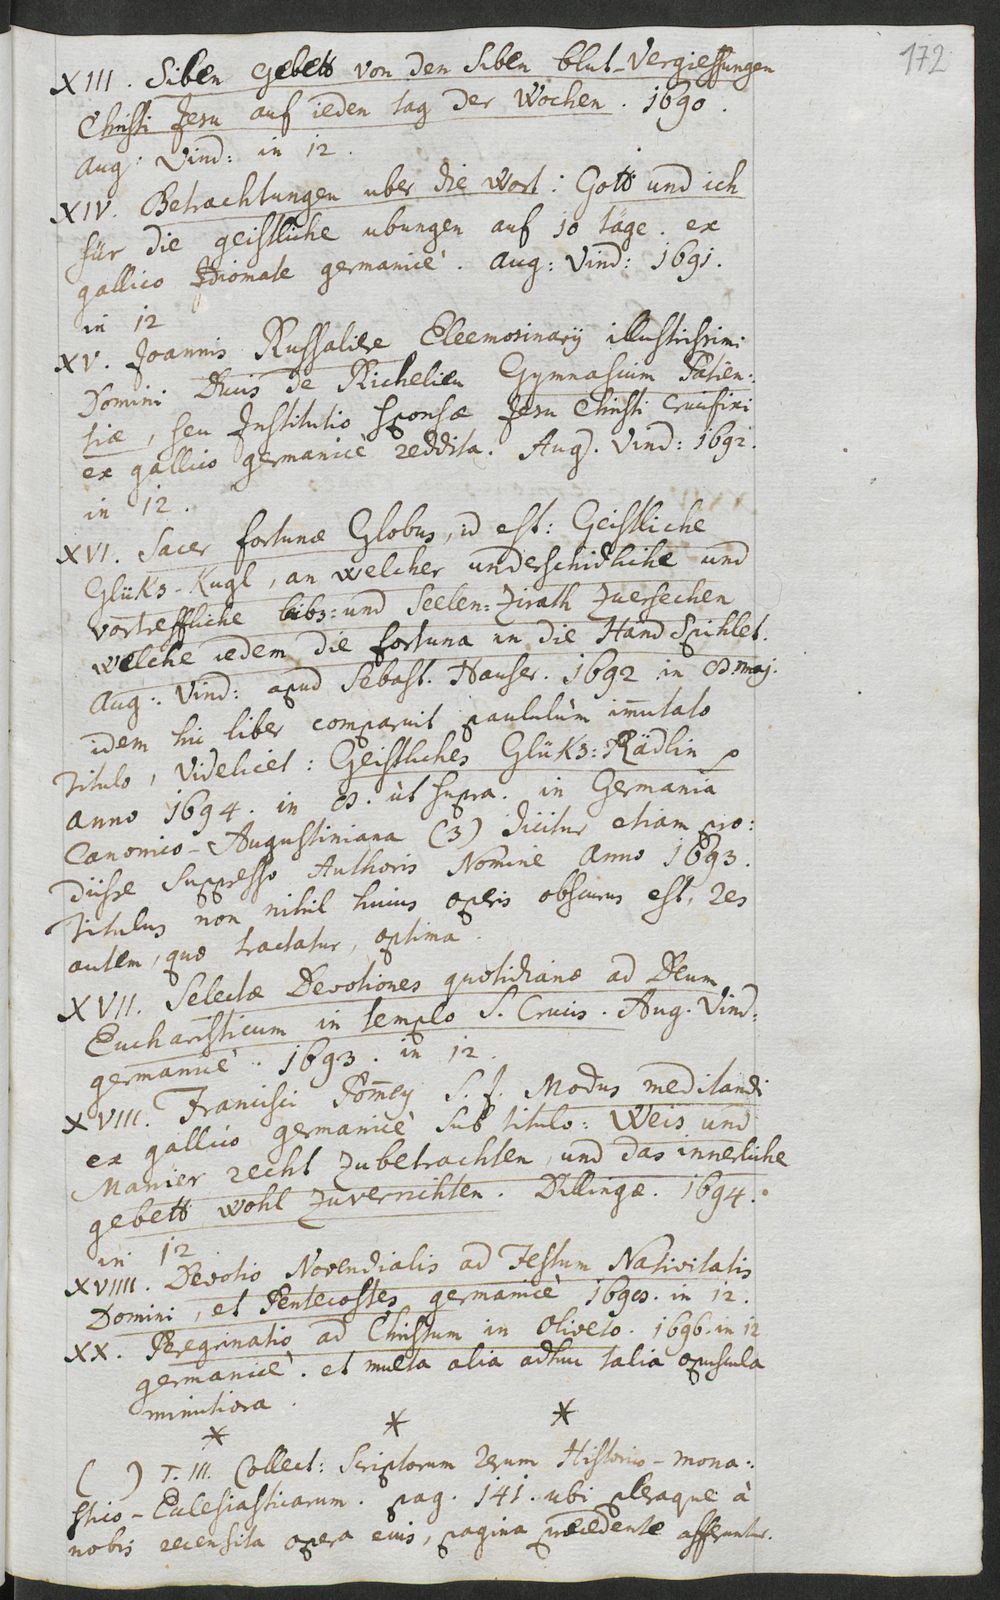 172
XIII. Siben Gebett von den Siben blut-Vergiessungen
Christi Jesu auf ieden tag der Wochen. 1690.
Aug: Vind: in 12.
XIV. Betrachtungen uber die Wort: Gott und ich
für die geistliche ubungen auf 10 täge. ex
gallico Idiomate germanicè. Aug: Vind: 1691.
in 12
XV. Joannis Russaliere Eleemosinarij illustrissimi
Domini Ducis de Richelieu Gymnasium Patien:
tiæ, seu Institutio Sponsæ Jesu Christi Crucifixi
ex gallico germanicè reddita. Aug. Vind: 1692.
in 12.
XVI. Sacer fortunæ Globus, id est: Geistliche
Glüks-Kugl, an welcher underschidliche und
vortreffliche leibs: und Seelen-Zirath zuersechen
welche iedem die fortuna in die Hand Spihlet.
Aug: Vind: apud Sebast. Hauser. 1692 in 8 maj.
idem hic liber comparuit paululùm im̄utato
titulo, Videlicet: Geistliches Glüks-Rädlin
anno 1694. in 8. ùt supra. in Germania
Canonico-Augustiniana (3) dicitur etiam pro:
diisse Suppresso Authoris Nomine Anno 1693.
titulus non nihil huius operis obscurus est, res
autem, quæ tractatur, optima.
XVII. Selectæ Devotiones quotidianæ ad Deum
Eucharisticum in templo S. Crucis. Aug. Vind:
germanicè. 1693. in 12.
XVIII. Francisci Pom̄ey S.J. Modus meditandi
ex gallico germanicè sub titulo: Weis und
Manier recht zubetrachten, und das innerliche
gebett wohl zuverrichten. Dillingæ. 1694.
in 12
XVIIII. Devotio Novendialis ad Festum Nativitatis
Domini, et Pentecostes germanicè 1698. in 12.
XX. Peregrinatio ad Christum in Oliveto. 1696. in 12
germanicè. et multa alia adhuc talia opuscula
minutiora.
* * *
( ) T. III. Collect: Scriptorum rerum Historico-mona:
stico-Ecclesiasticarum. pag. 141. ubi pleraque à
nobis recensita opera eius, pagina præcedente afferuntur.